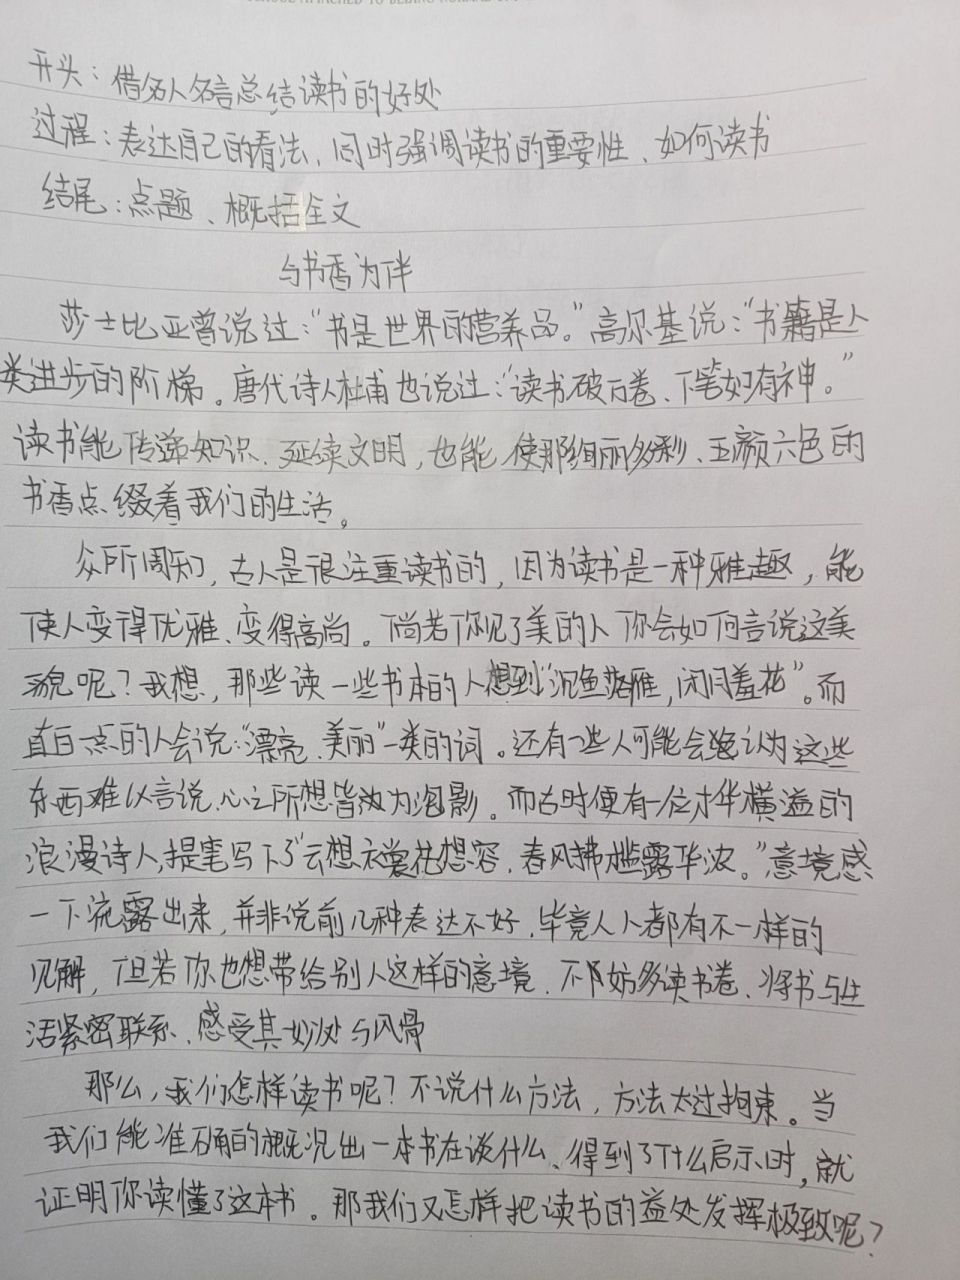 开头：借名人名言总结读书的好处
过程：表达自己的看法、同时强调读书的重要性、如何读书
结尾：点题、概括全文
与书香为伴
莎士比亚曾说过：“书是世界的营养品。”高尔基说：“书籍是人
类进步的阶梯。唐代诗人杜甫也说过：“读书破万卷、下笔如有神。”
读书能传递知识、延续文明，也能使那绚丽多彩、五颜六色的
书香点缀着我们的生活。
众所周知，古人是很注重读书的，因为读书是一种雅趣，能
使人变得优雅、变得高尚。倘若你见了美的人你会如何言说这美
貌呢？我想，那些读一些书本的人想到“沉鱼落雁，闭月羞花”。而
直白一点的人会说：“漂亮、美丽”一类的词。还有一些人可能会认为这些
东西难以言说、心之所想皆为泡影。而古时便有一位才华横溢的
浪漫诗人，提笔写下了“云想衣裳花想容，春风拂槛露华浓。”意境感
一下流露出来，并非说前几种表达不好，毕竟人人都有不一样的
见解，但若你也想带给别人这样的意境、不妨多读书卷、将书与生
活紧密联系、感受其妙处与风骨
那么，我们怎样读书呢？不说什么方法，方法太过拘束。当
我们能准确的概况出一本书在谈什么、得到了什么启示时，就
证明你读懂了这本书。那我们又怎样把读书的益处发挥极致呢？